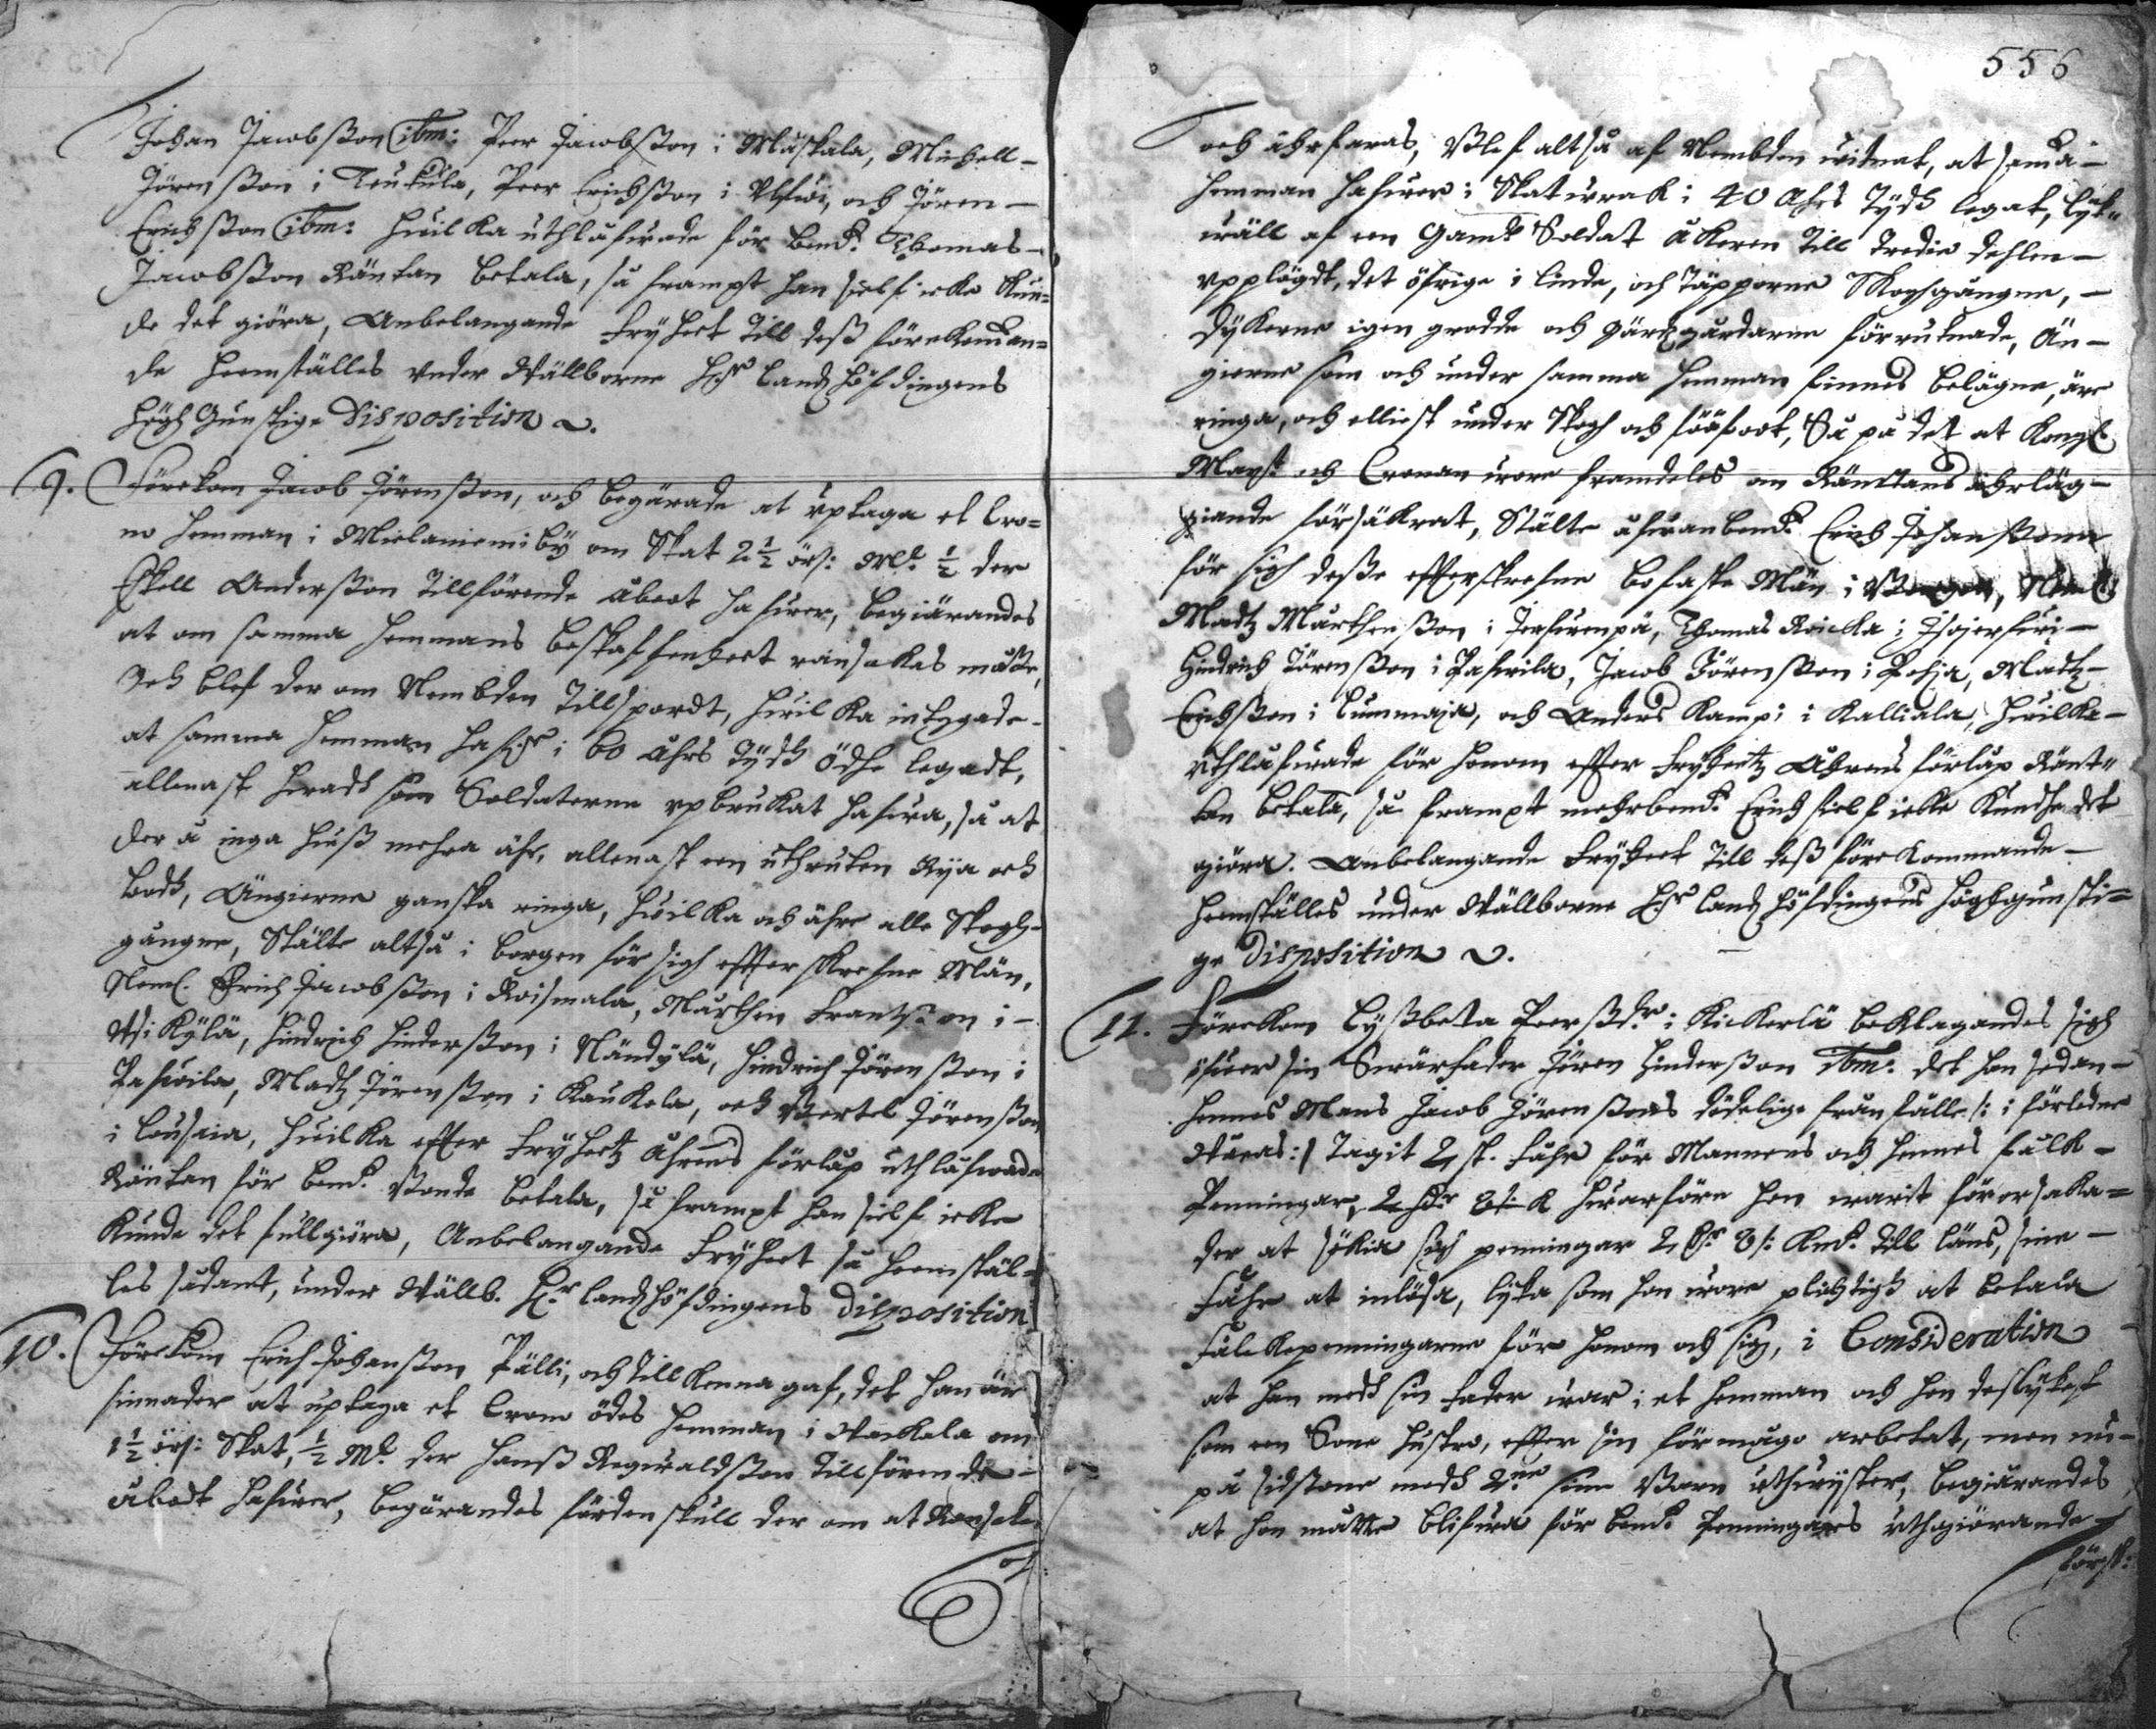 Johan Jacobsson ibm: Peer Jacobsson i Måskala, Michell-
Jörensson i Teukula, Peer Erichsson i Ulfwi, och Jören-
Erichsson ibm: huilka uthlåfwade för bemd:te Thomas-
Jacobsson Räntan betala, så frampt han sielf icke kun=
de det giöra, Anbelangande Fryheet till dess förekomman=
de heemställes under Wällborne H:r Landzhöfdingens
högh Gunstige Disposition
9. Förekom Jacob Jörensson, och begärade at uptaga et Cro=
no hemman i Mielaniemi by om Skat 2 1/2 örs: M:l 1/2 der
Eskell Andersson tillförende åboet hafwer, begiärandes
at om samma hemmans beskaffenheet ransakas måtte,
Och blef der om Nembden tillspordt, huilka intygade-
at samma hemman haf:r i 60 åhrs tydh ödhe legadt,
allenast hwadh som Soldaterne upbrukat hafwa, så at
der å inga huss mehra ähr, allenast een uthruten Rya och
bodh, Ängierne ganska ringa, huilka och ähre alle Skogh-
gångne, Stälte altså i borgen för sigh effterskrefne Män,
Neml. Erich Jacobsson i Roismala, Mårthen Frantzson i-
Äsi Kylä, Hindrich Hindersson i Nändylä, Hindrich Jörensson i
Pafwila, Madz Jörensson i Kaukola, och Bertel Jörensson
i Lousaia, huilka effter Fryheetz åhrens förlåp uthlåfwade
Räntan för bem:te bonde betala, så frampt han sielf icke
kunde det fullgiöra, Anbelangande Fryheet så heemstäl-
les sådant, under Wällb. H:r Landzhöfdingens Disposition
10. Förekom Erich Johansson Pälli, och tillkenna gaf, det han är
sinnader at uptaga et Crono ödes hemman i Wackala om
1 1/2 örs: Skat, 1/2 M:l der Hanss Regwaldsson tillförende-
åbodt hafwer, begärandes fördenskull der om at Ransakas
och
556
och åhrfaras, Blef altså af Nembden witnat, at samma-
hemman hafwer i Skatwrak i 40 åhrs tydh legat, lyk"
wäll af een Gam:l Soldat åkeren till tredie dehlen-
upplögdt, det öfrige i linda, och täpporne Skoghgångne,-
dykerne igen grodde och gärdzgårdarne förrutnade, Än-
gierne som och under samma hemman finnes belägne, äre
ringa, och elliest under Skogh och , Så på det at Kongl:
May:st och Cronan wore framdeles om Räntans åhrläg-
giande försäkrat, Stälte ofwanbem:te Erich Johansson
för sigh desse effterskrefne bofaste Män i , Neml:
Madz Mårthensson i Jerfwenpä, Thomas Röicka i Isojerfwi-
Hindrich Jörensson i Pafwila, Jacob Jörensson i Pohja, Madz-
Erichsson i Lummaja, och Anders Kampi i Kalliala, huilka-
uthlåfwade för honom effter Fryheetz Åhrens förlåp Ränt"
tan betala, så frampt mehrbem:te Erich sielf icke kundhe det
giöra. Anbelangande Fryheet till dess förekommande-
heemställes under Wällborne H:r Landzhöfdingens höghgunsti=
ge Disposition
11. Förekom Lyssbetta Peerssd:r i Kickerlä beklagandes sigh
öfwer sin Swärfader Jören Hindersson ibm: det han sedan-
hennes Mans Jacob Jörenssons dödelige frånfälle /: i förledne
Wåras :/ Tagit 2 st. Fåhr för Mannens och hennes fålk-
Penningar, hwarföre hon warit förorsaka=
der at sökia sigh penningar 2 till låns, sine-
Fåhr at inlösa, lyka som hon wore plichtigh at betala
Fålckepenningarne före honom och sigh, i Consideration
at han medh sin fader war i et hemman och hon deslykest
som een Sone hustro, effter sin förmågo arbetat, men nu-
på sidstone medh 2:ne sine Barn uthwyster, begiärandes
at hon måtte blifwa för bem:te Penningars uthgiörande-
försk: